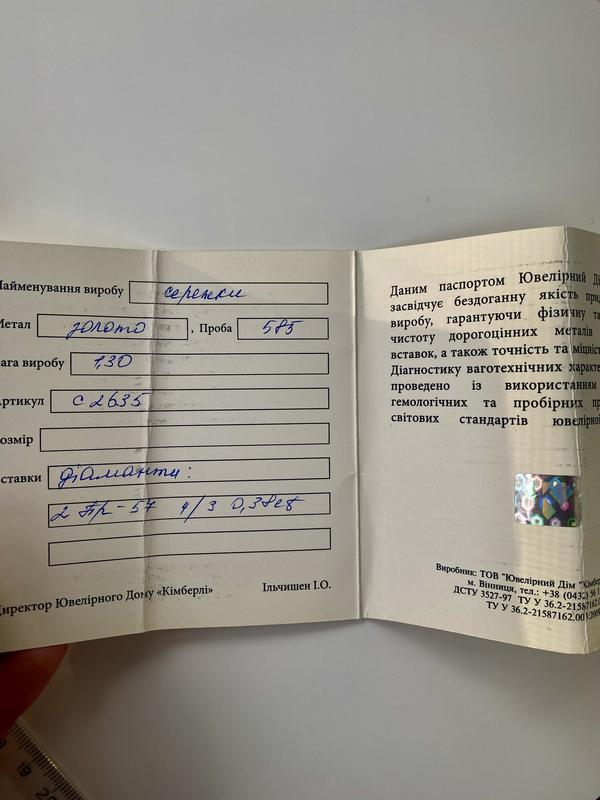 Найменування виробу сережки
Метал золото , Проба 585
Вага виробу 1,30
Артикул С 2635
Розмір
Вставки діаманти:
2 Кр-57 4/3 0,38ct
Директор Ювелірного Дому «Кімберлі» Ільчишен І.О.
Даним паспортом Ювелірний Ді
засвідчує бездоганну якість при
виробу, гарантуючи фізичну та
чистоту дорогоцінних металів
вставок, а також точність та міцніст
Діагностику ваготехнічних характе
проведено із використанням
гемологічних та пробірних пр
світових стандартів ювелірної
Виробник: ТОВ "Ювелірний Дім "Кімбер
м. Вінниця, тел.: +38 (0432) 56 1
ДСТУ 3527-97 ТУ У 36.2-21587162.0
ТУ У 36.2-21587162.003:2009
19 20